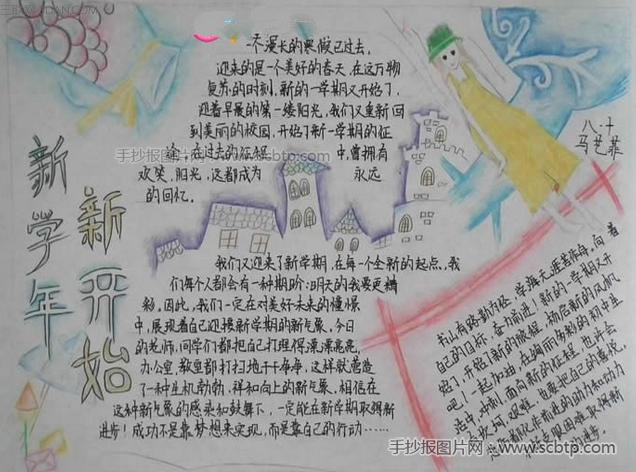 新学年
新开始
一个漫长的寒假已过去,
迎来的是一个美好的春天,在这万物
复苏的时刻,新的一学期又开始了,
迎着早晨的第一缕阳光,我们又重新回
到美丽的校园,开始了新一学期的征
途,在过去的征程 中,曾拥有
欢笑,阳光,这都成为 永远
的回忆.
八.十
马艺菲
我们又迎来了新学期,在每一个全新的起点,我
们每个人都会有一种期盼:明天的我要更精
彩,因此,我们一定在对美好未来的憧憬
中,展现着自己迎接新学期的新气象.今日
的老师,同学们都把自己打理得漂漂亮亮,
办公室,教室都打扫地干干净净,这样就营造
了一种生机勃勃,祥和向上的新气象.相信在
这种新气象的感染和鼓舞下,一定能在新学期取得新
进步!成功不是靠梦想来实现,而是靠自己的行动……
书山有路勤为径,学海无涯苦作舟,向着
自己的目标,奋力前进!新的一学期又开
始了,开始了新的旅程,扬起新的风帆
吧!一起加油,在绚丽多彩的初中生
活中,冲刺,面向新的征程,也许会
有坎坷,艰难,也要把自己的喜悦,
化作前进的动力和动力
克服困难取得新
的进步.
手抄报图片网 www.scbtp.com
手抄报图片网 - www.scbtp.com